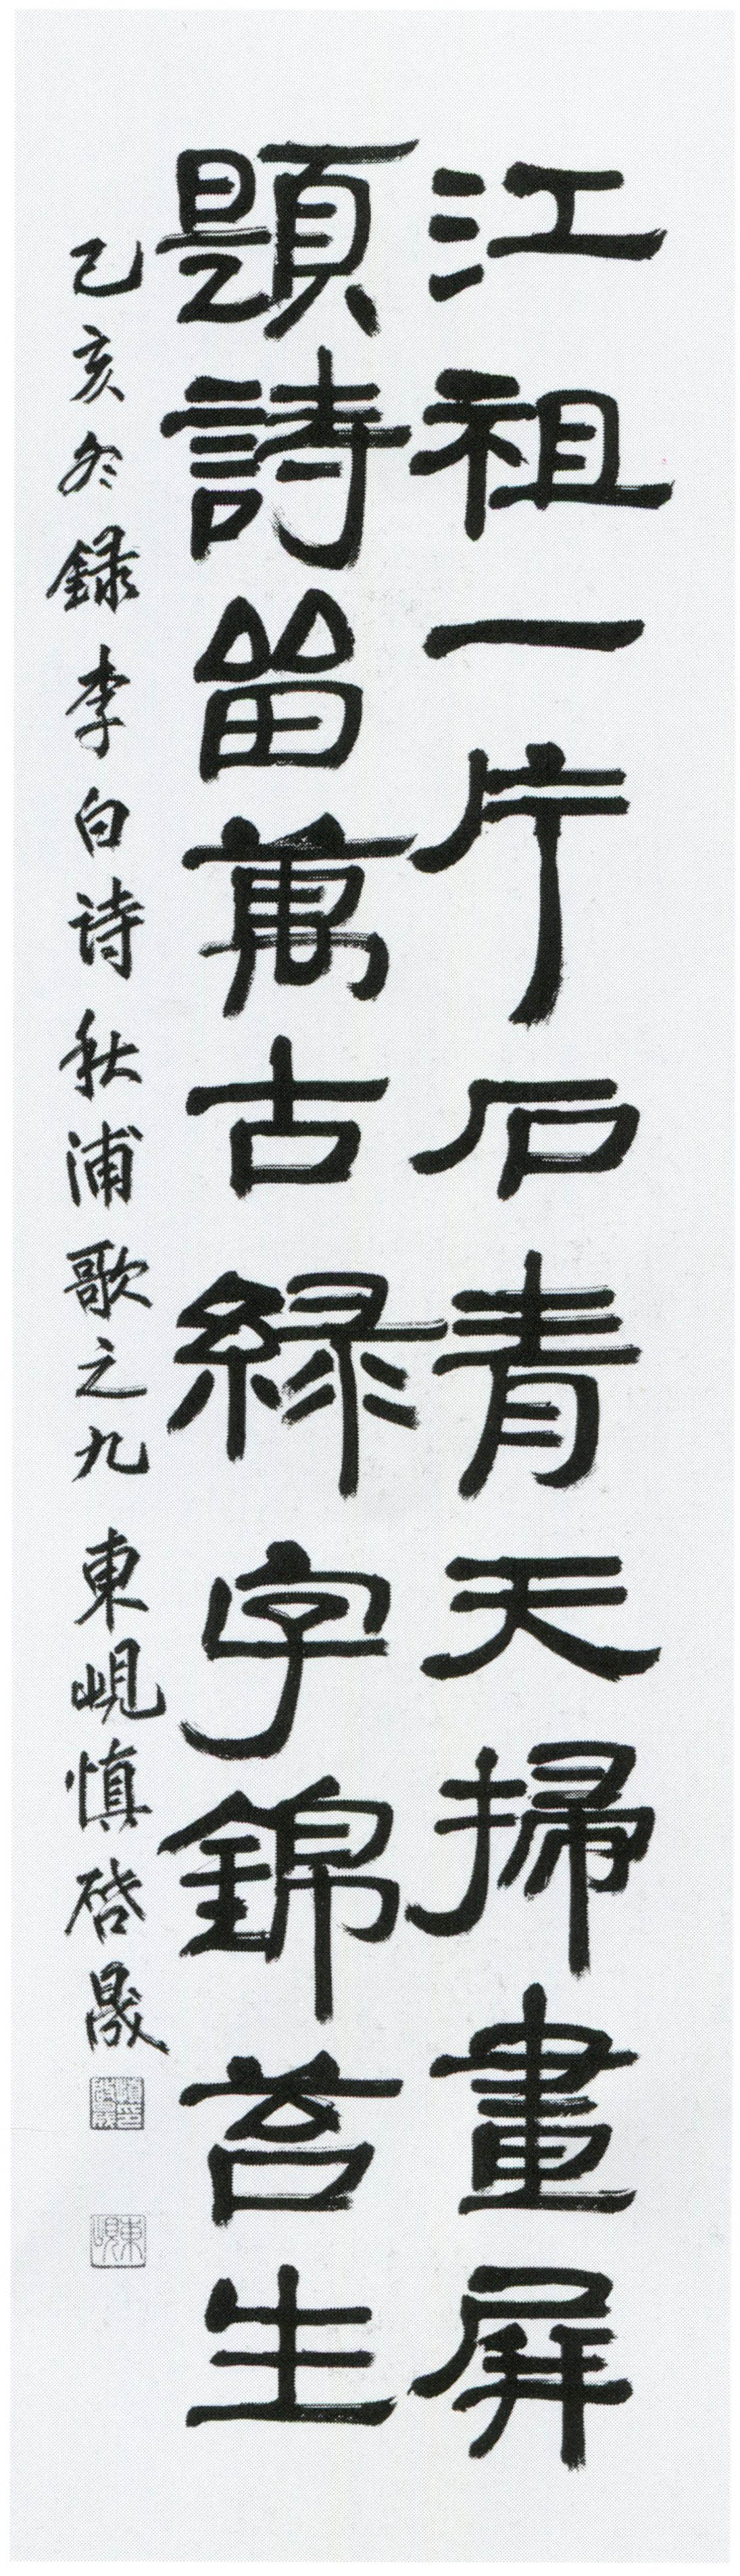 江祖一片石青天掃畫屏
題詩留萬古綠字錦苔生
己亥冬錄李白诗秋浦歌之九 東峴慎啓晟
東峴